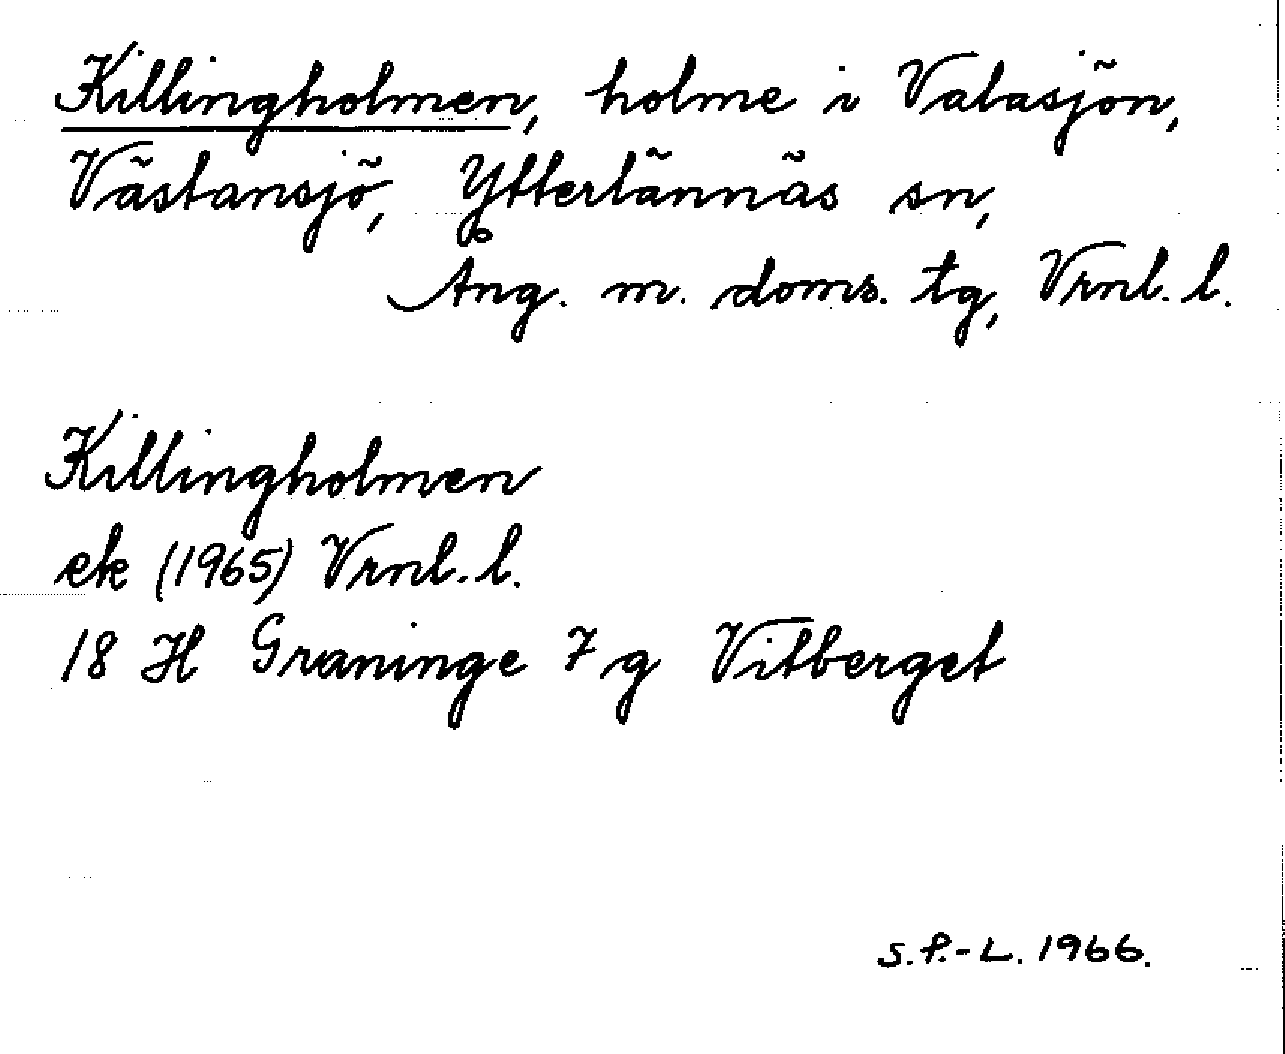 Killingholmen, holme i Valasjön,
Västansjö, Ytterlännäs sn,
Ång. m. doms. tg, Vrnl. l.
Killingholmen
ek (1965) Vrnl. l.
18 H Graninge 7 g Vitberget
S. P.-L. 1966.